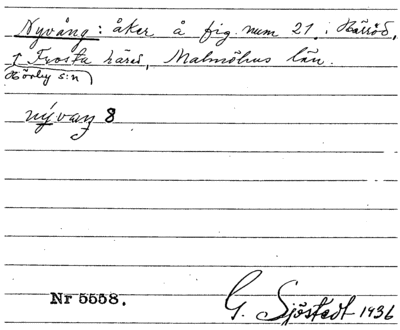 Nyvång: åker å fig. num 21. i Härröd,
↑ Frosta härad, Malmöhus län.
Hörby s:n
nývaŋ 8
Nr 5558.
G. Sjöstedt 1936